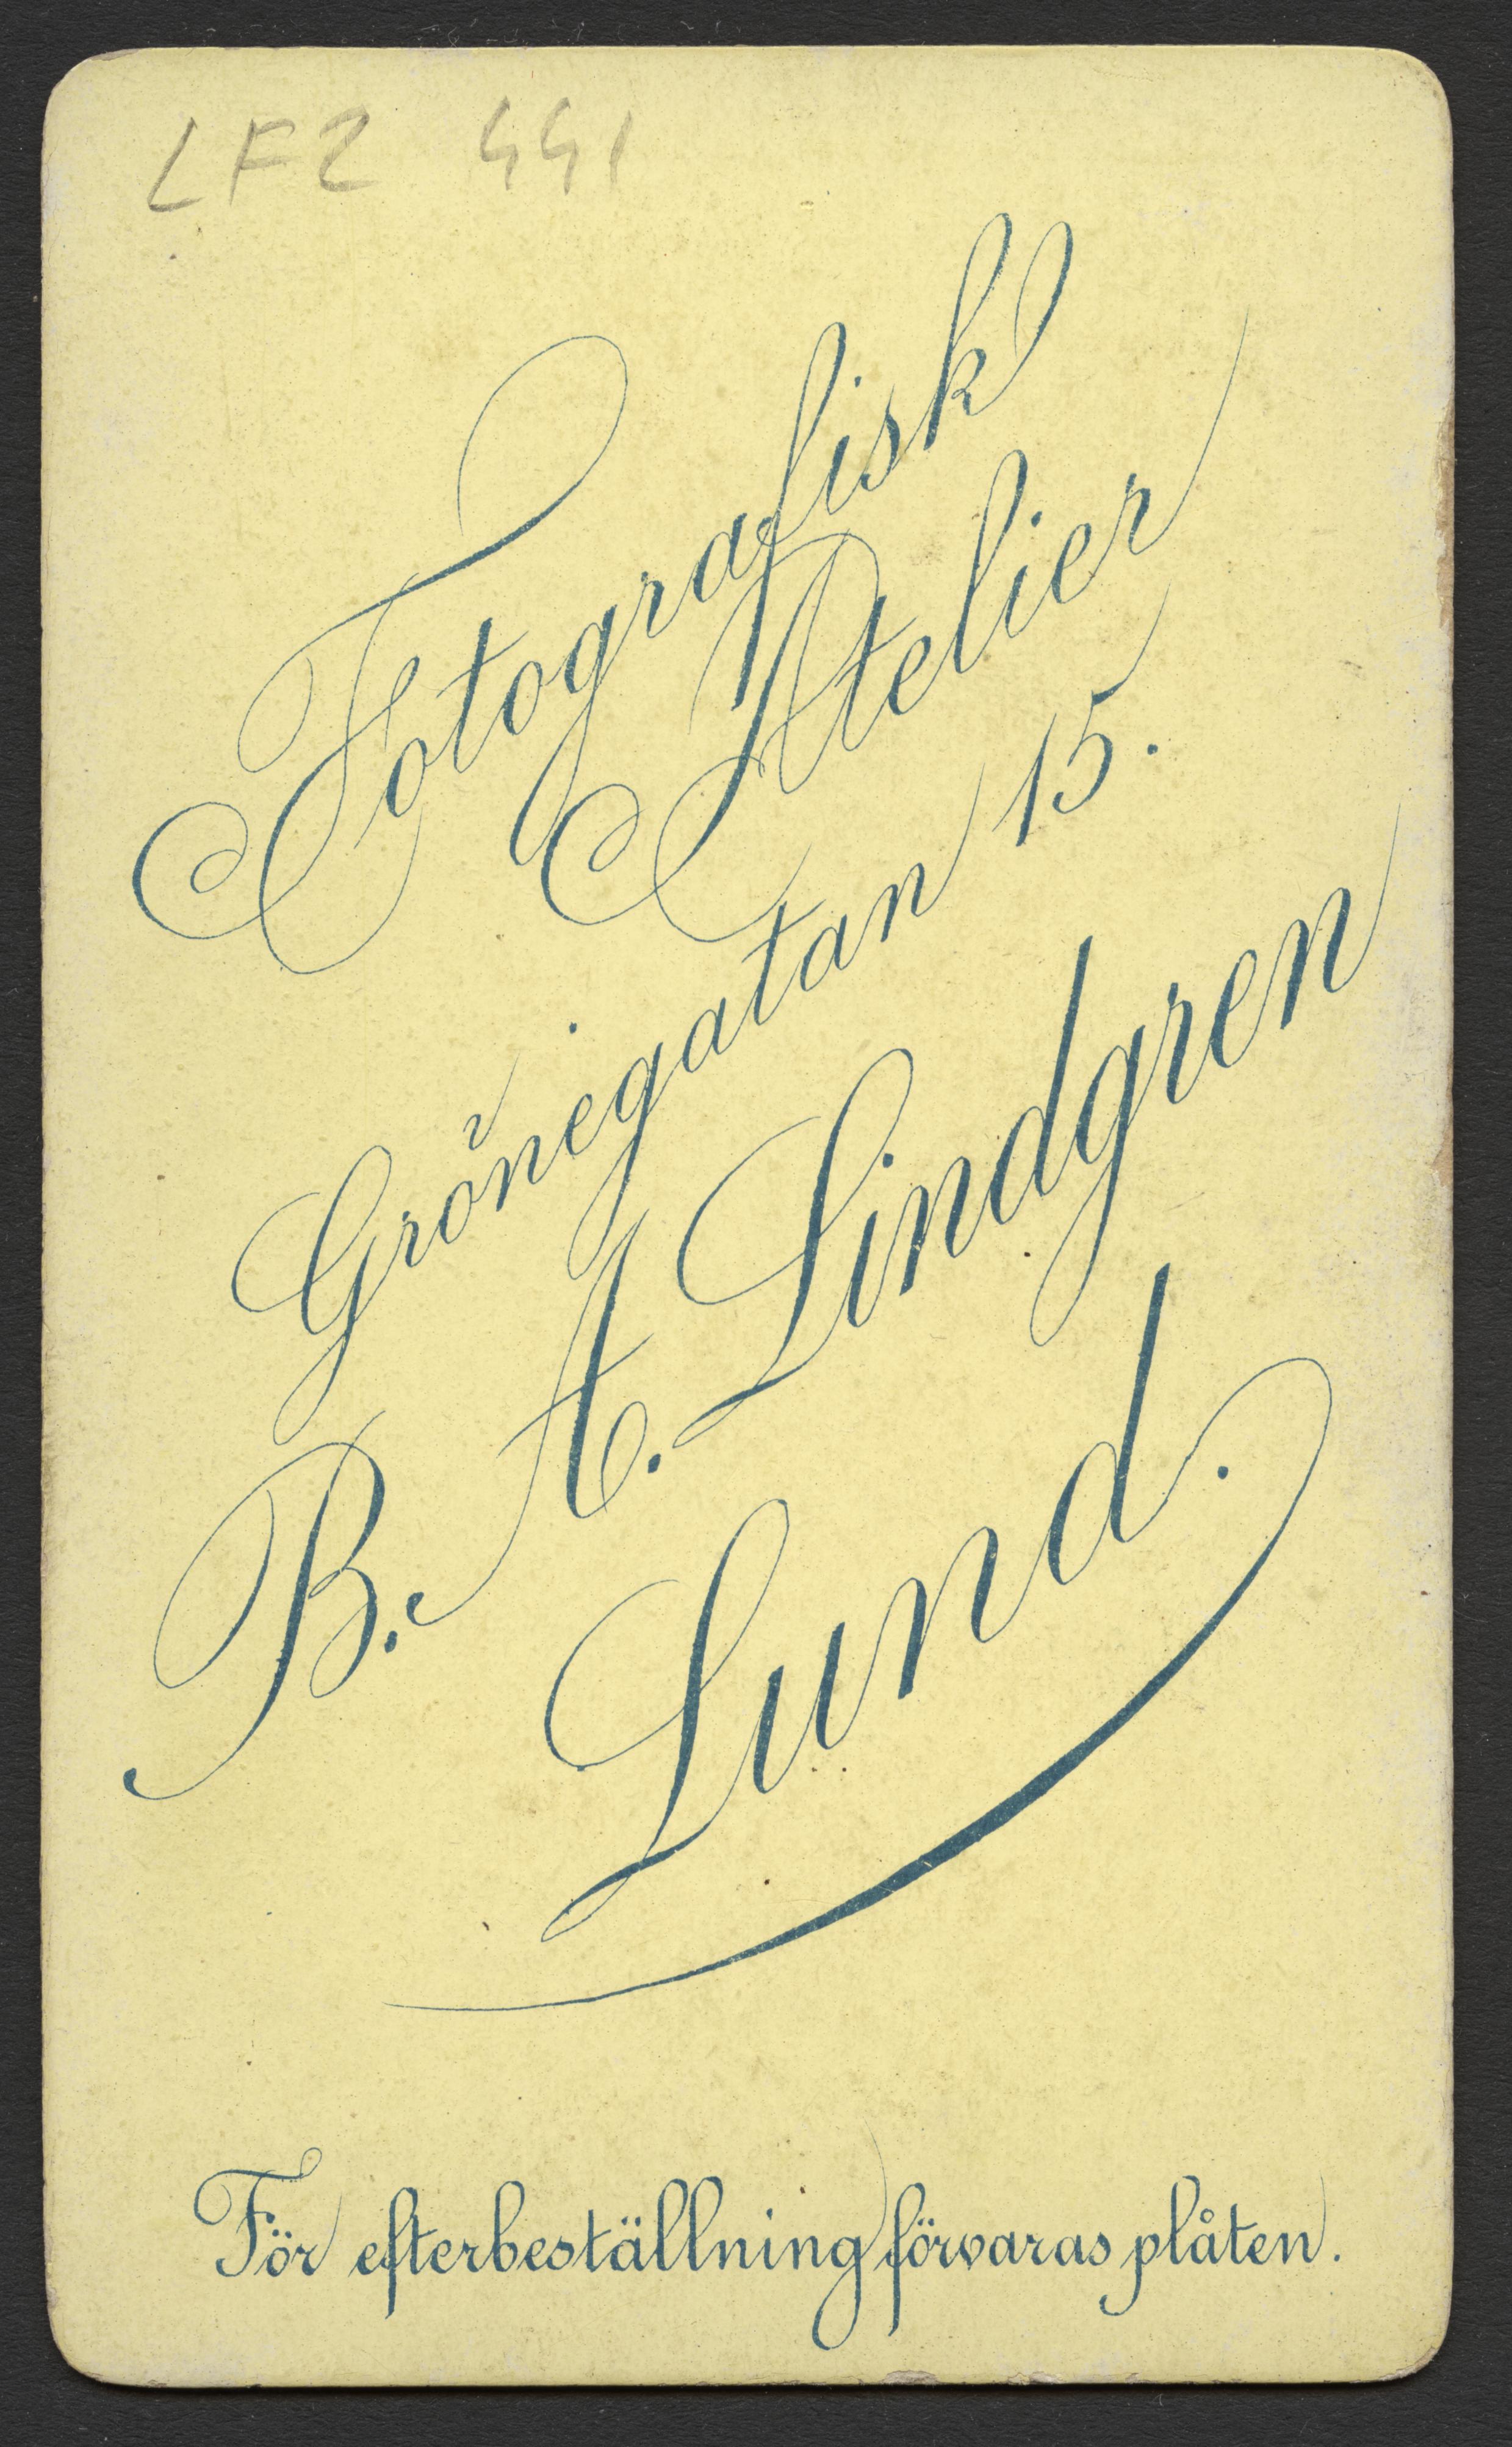 LFZ 441
Fotografisk
Atelier
Grönegatan 15.
B. A. Lindgren
Lund.
För efterbeställning förvaras plåten.